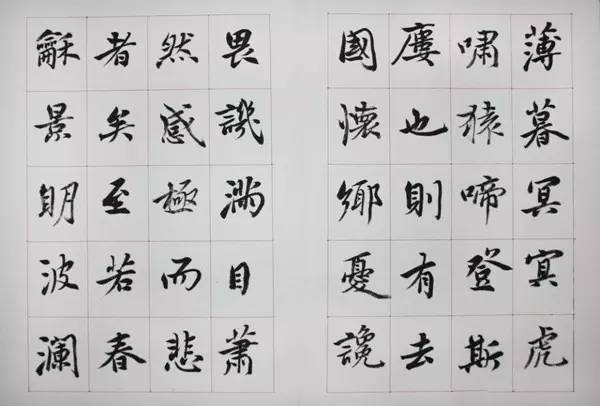 薄暮冥冥虎
嘯猿啼登斯
廔也則有去
國懷鄉憂讒
畏譏滿目蕭
然感極而悲
者矣至若春
龢景眀波瀾